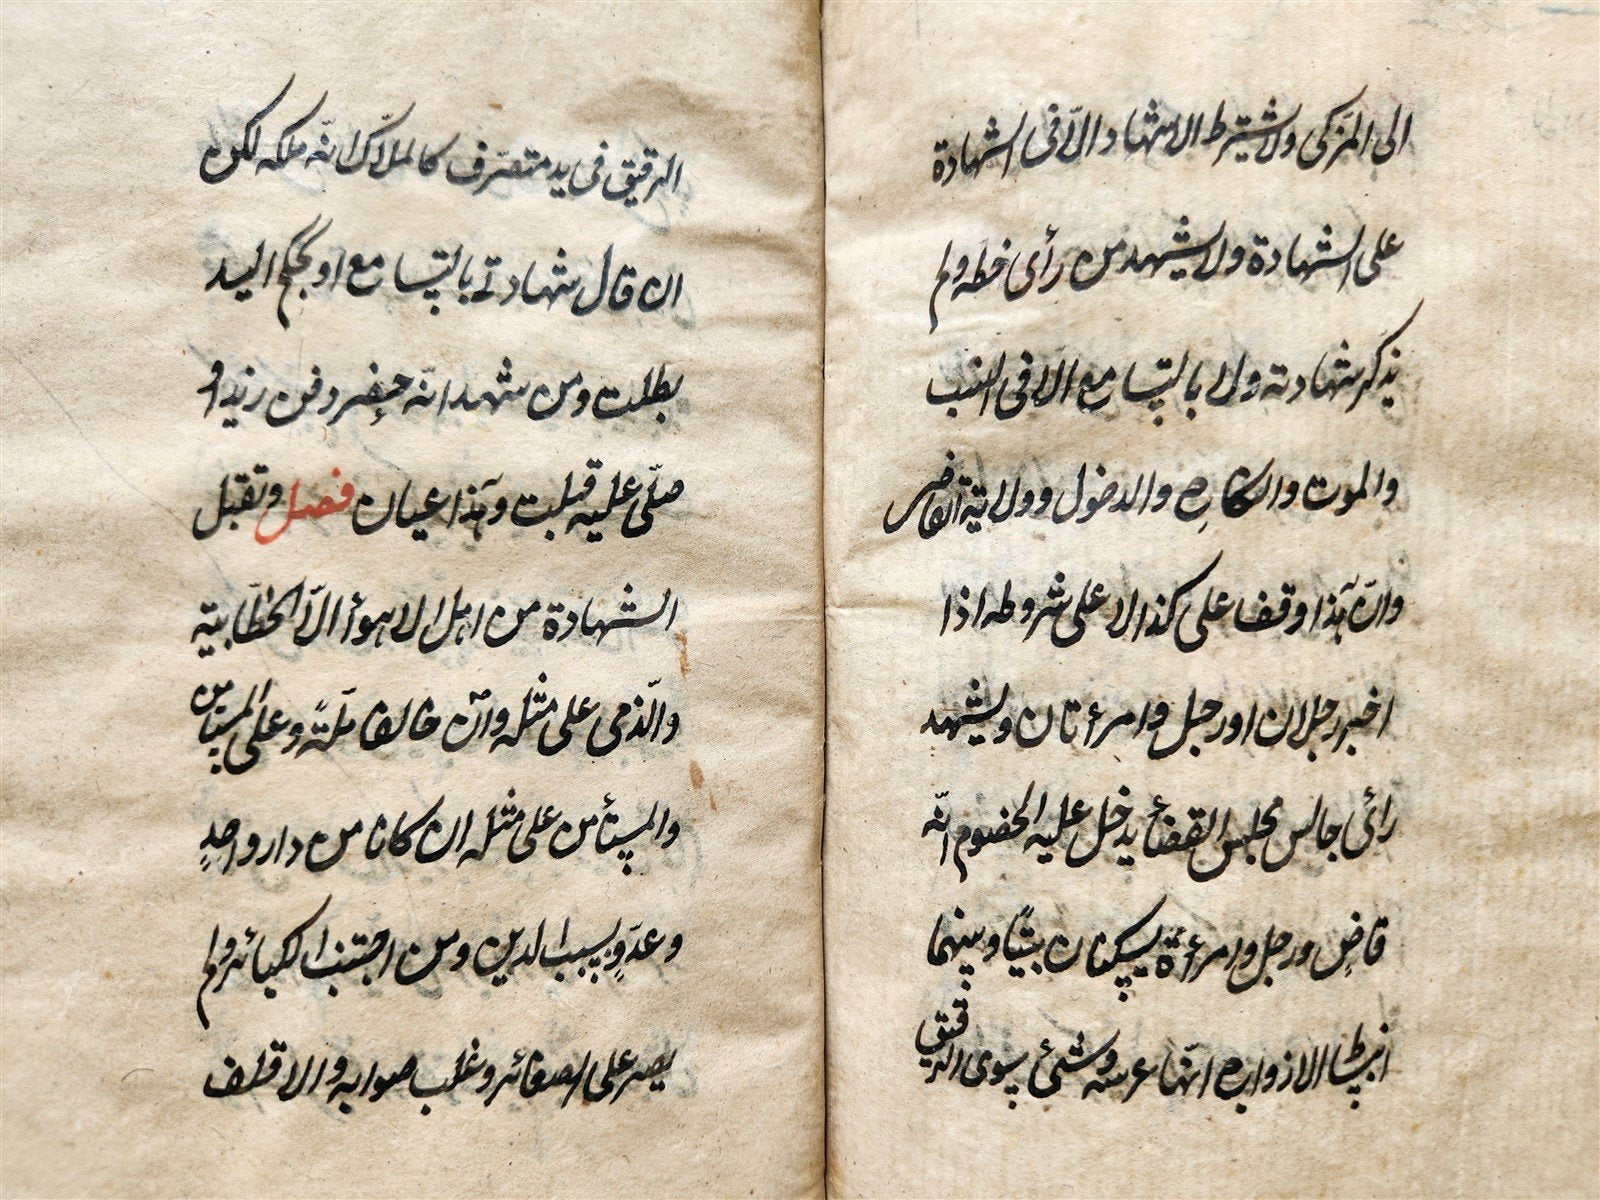 الى المزكى ولا يشترط الاشهاد الّا فى الشهادة
على الشهادة ولا يشهد من رأى خطه ولم
يذكر شهادته ولا بالتسامع الا فى النسب
والموت والنكاح والدخول وولاية القاضى
وانّ هذا وقف على كذا لا على شروطه اذا
اخبر رجلان او رجل وامرأتان ويشهد
رائى جالس مجلس القضاء يدخل عليه الخصوم انّه
قاضٍ ورجل وامرأة يسكنان بيتًا وبينهما
انبساط الازواج انّها عرسه وشئ سوى الرقيق
الرقيق فى يد متصرّف كالملّاك انّه ملكه لكن
ان قال شهادتى بالتسامع او بحكم اليد
بطلت ومن شهد انّه حضر دفن زيد او
صلّى عليه قبلت وهذا عيان فصل وتقبل
الشهادة من اهل الاهوأ الّا الخطّابية
والذّمى على مثله وان خالفا ملّةً وعلى المستأمن
والمستأمن على مثله ان كانا من دار واحدٍ
وعدوٍ بسبب الدين ومن اجتنب الكبائر ولم
يصر على الصغائر وغلب صوابه والاقلف